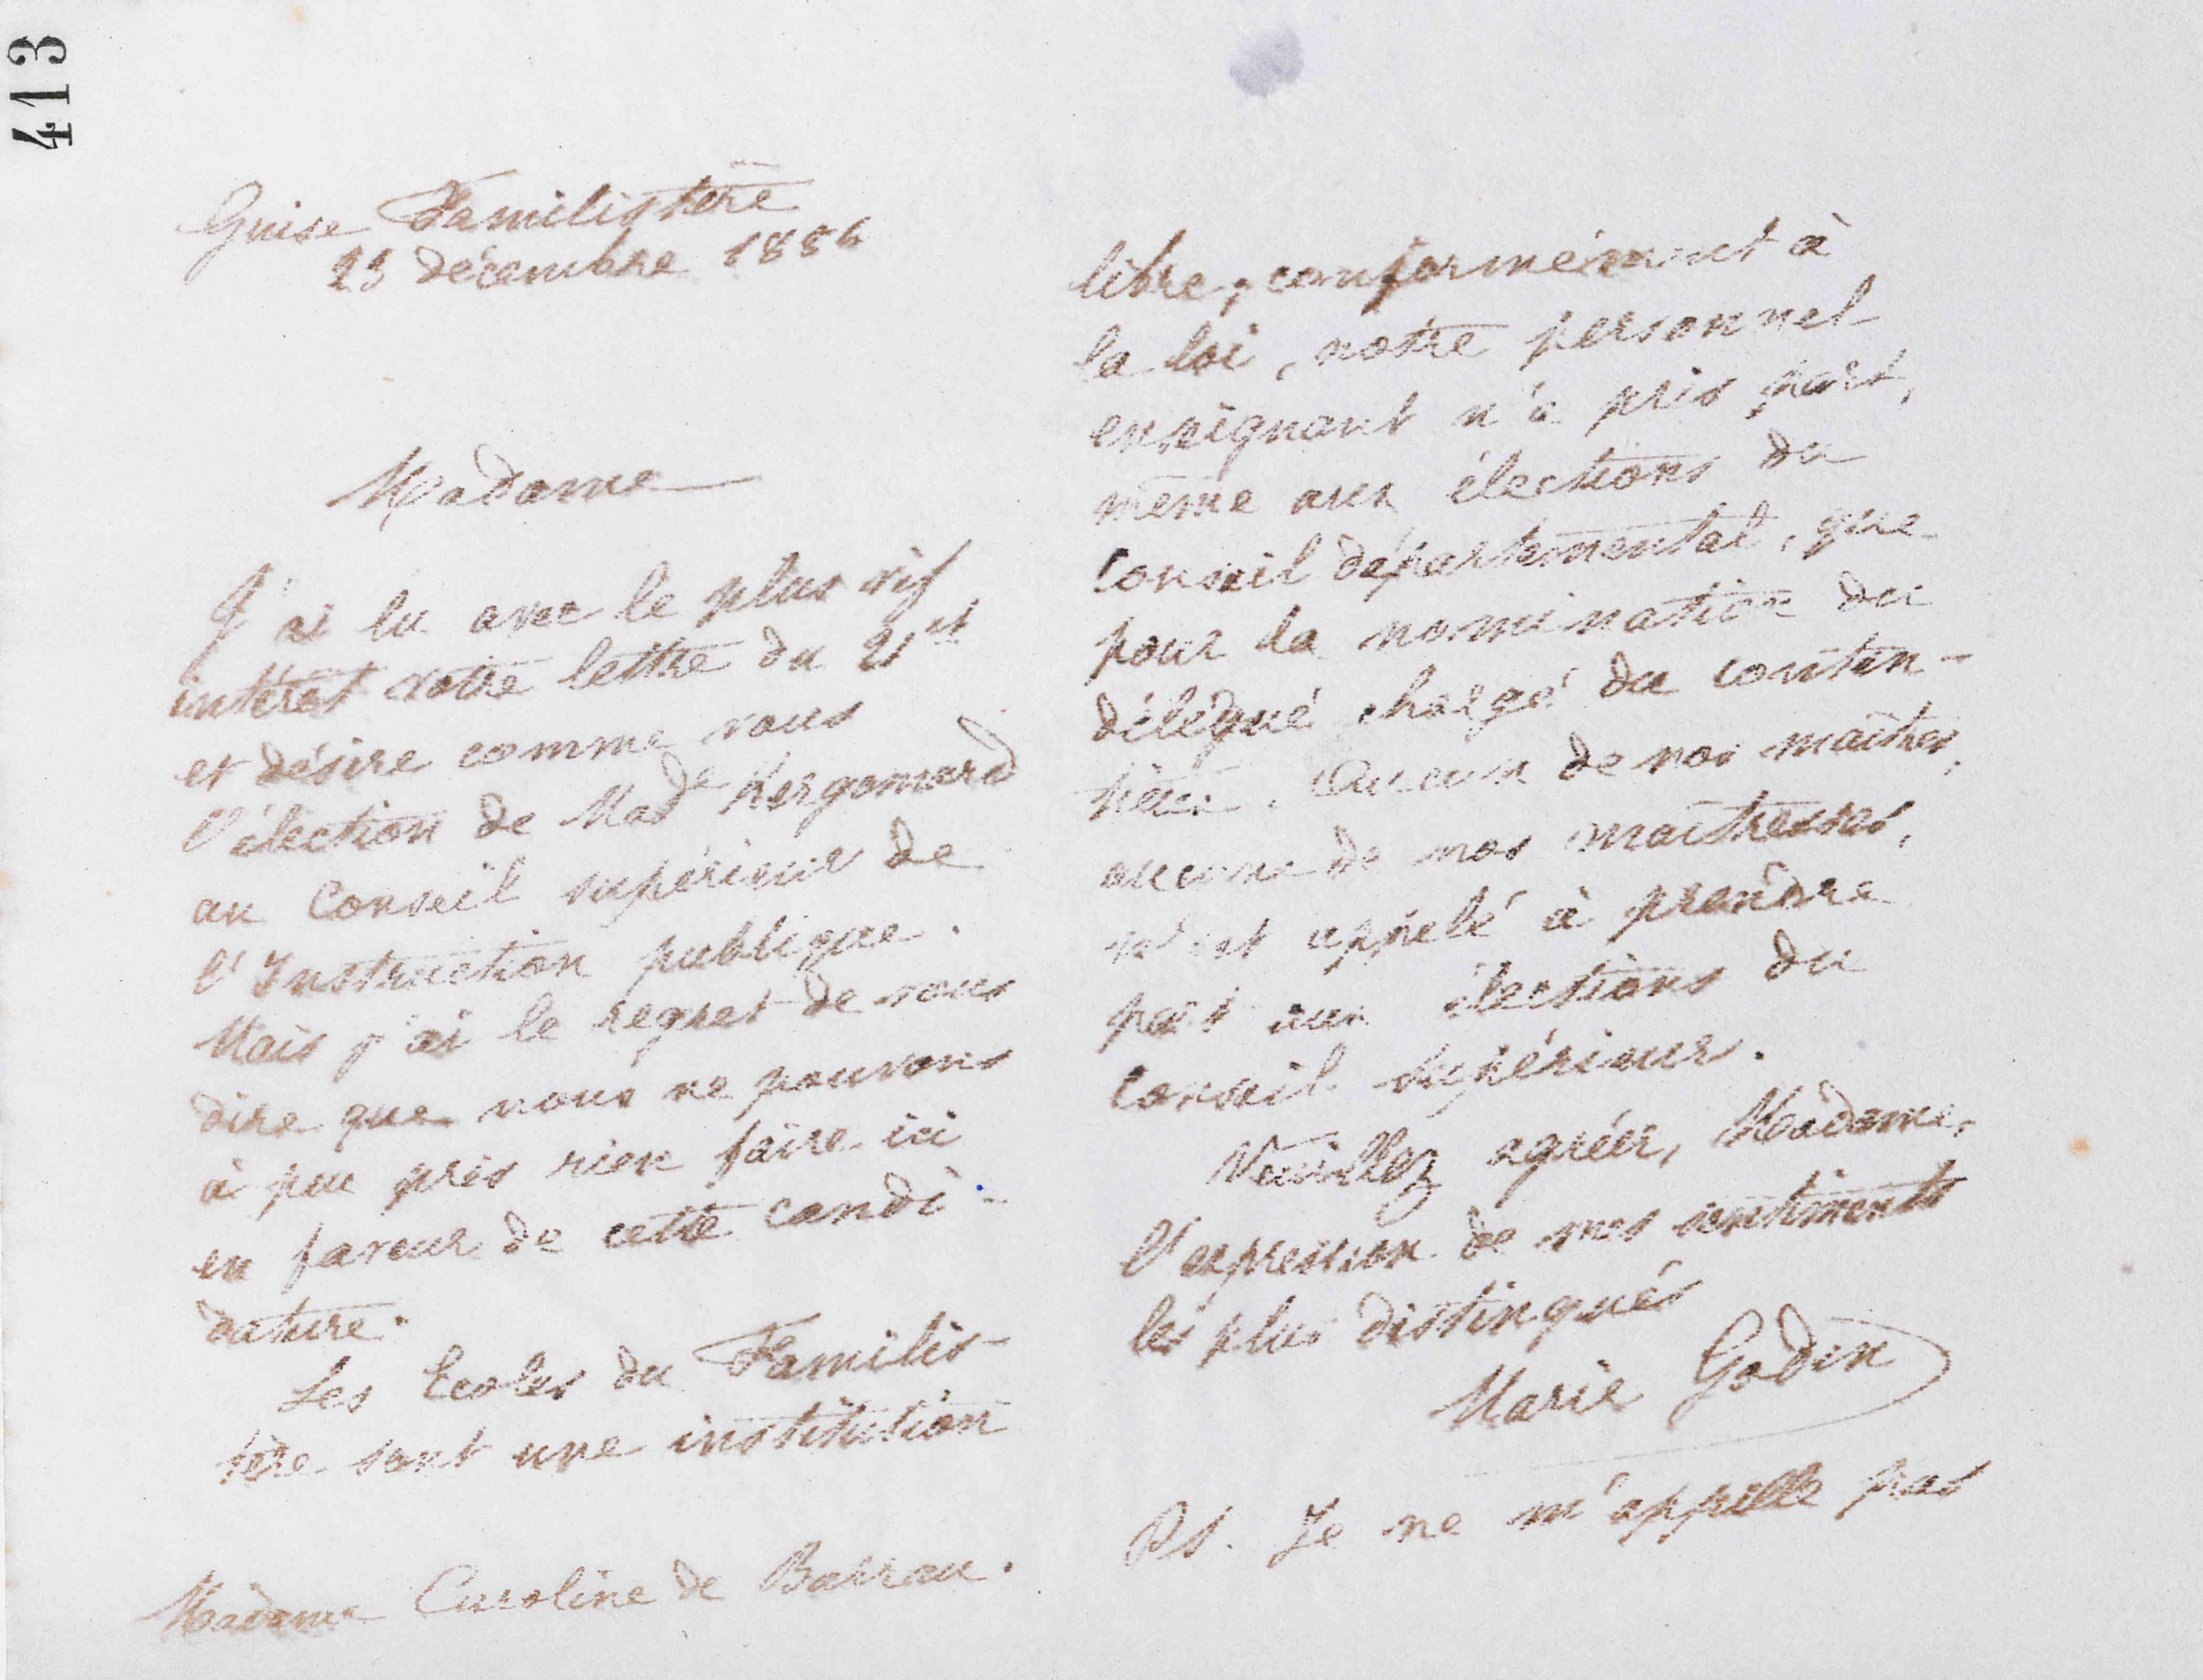 413
Guise Familistère
23 décembre 1886
Madame
J'ai lu avec le plus vif
intérêt votre lettre du 21 ct
et désire comme vous
l'élection de Mad de Kergomard
au Conseil supérieur de
l'Instruction publique.
Mais j'ai le regret de vous
dire que nous ne pouvons
à peu près rien faire ici
en faveur de cette candi-
dature.
Les Ecoles du Familis-
tère sont une institution
Madame Caroline de Barrau.
libre ; conformément à
la loi, notre personnel
enseignant n'a pris part,
même aux élections du
Conseil départemental, que
pour la nomination du
délégué chargé du conten-
tieux. Aucun de nos maîtres,
aucune de nos maîtresses,
n'est appelé à prendre
part aux élections du
Conseil supérieur.
Veuillez agréer, Madame,
l'expression de mes sentiments
les plus distingués
Marie Godin
Ps. Je ne m'appelle pas